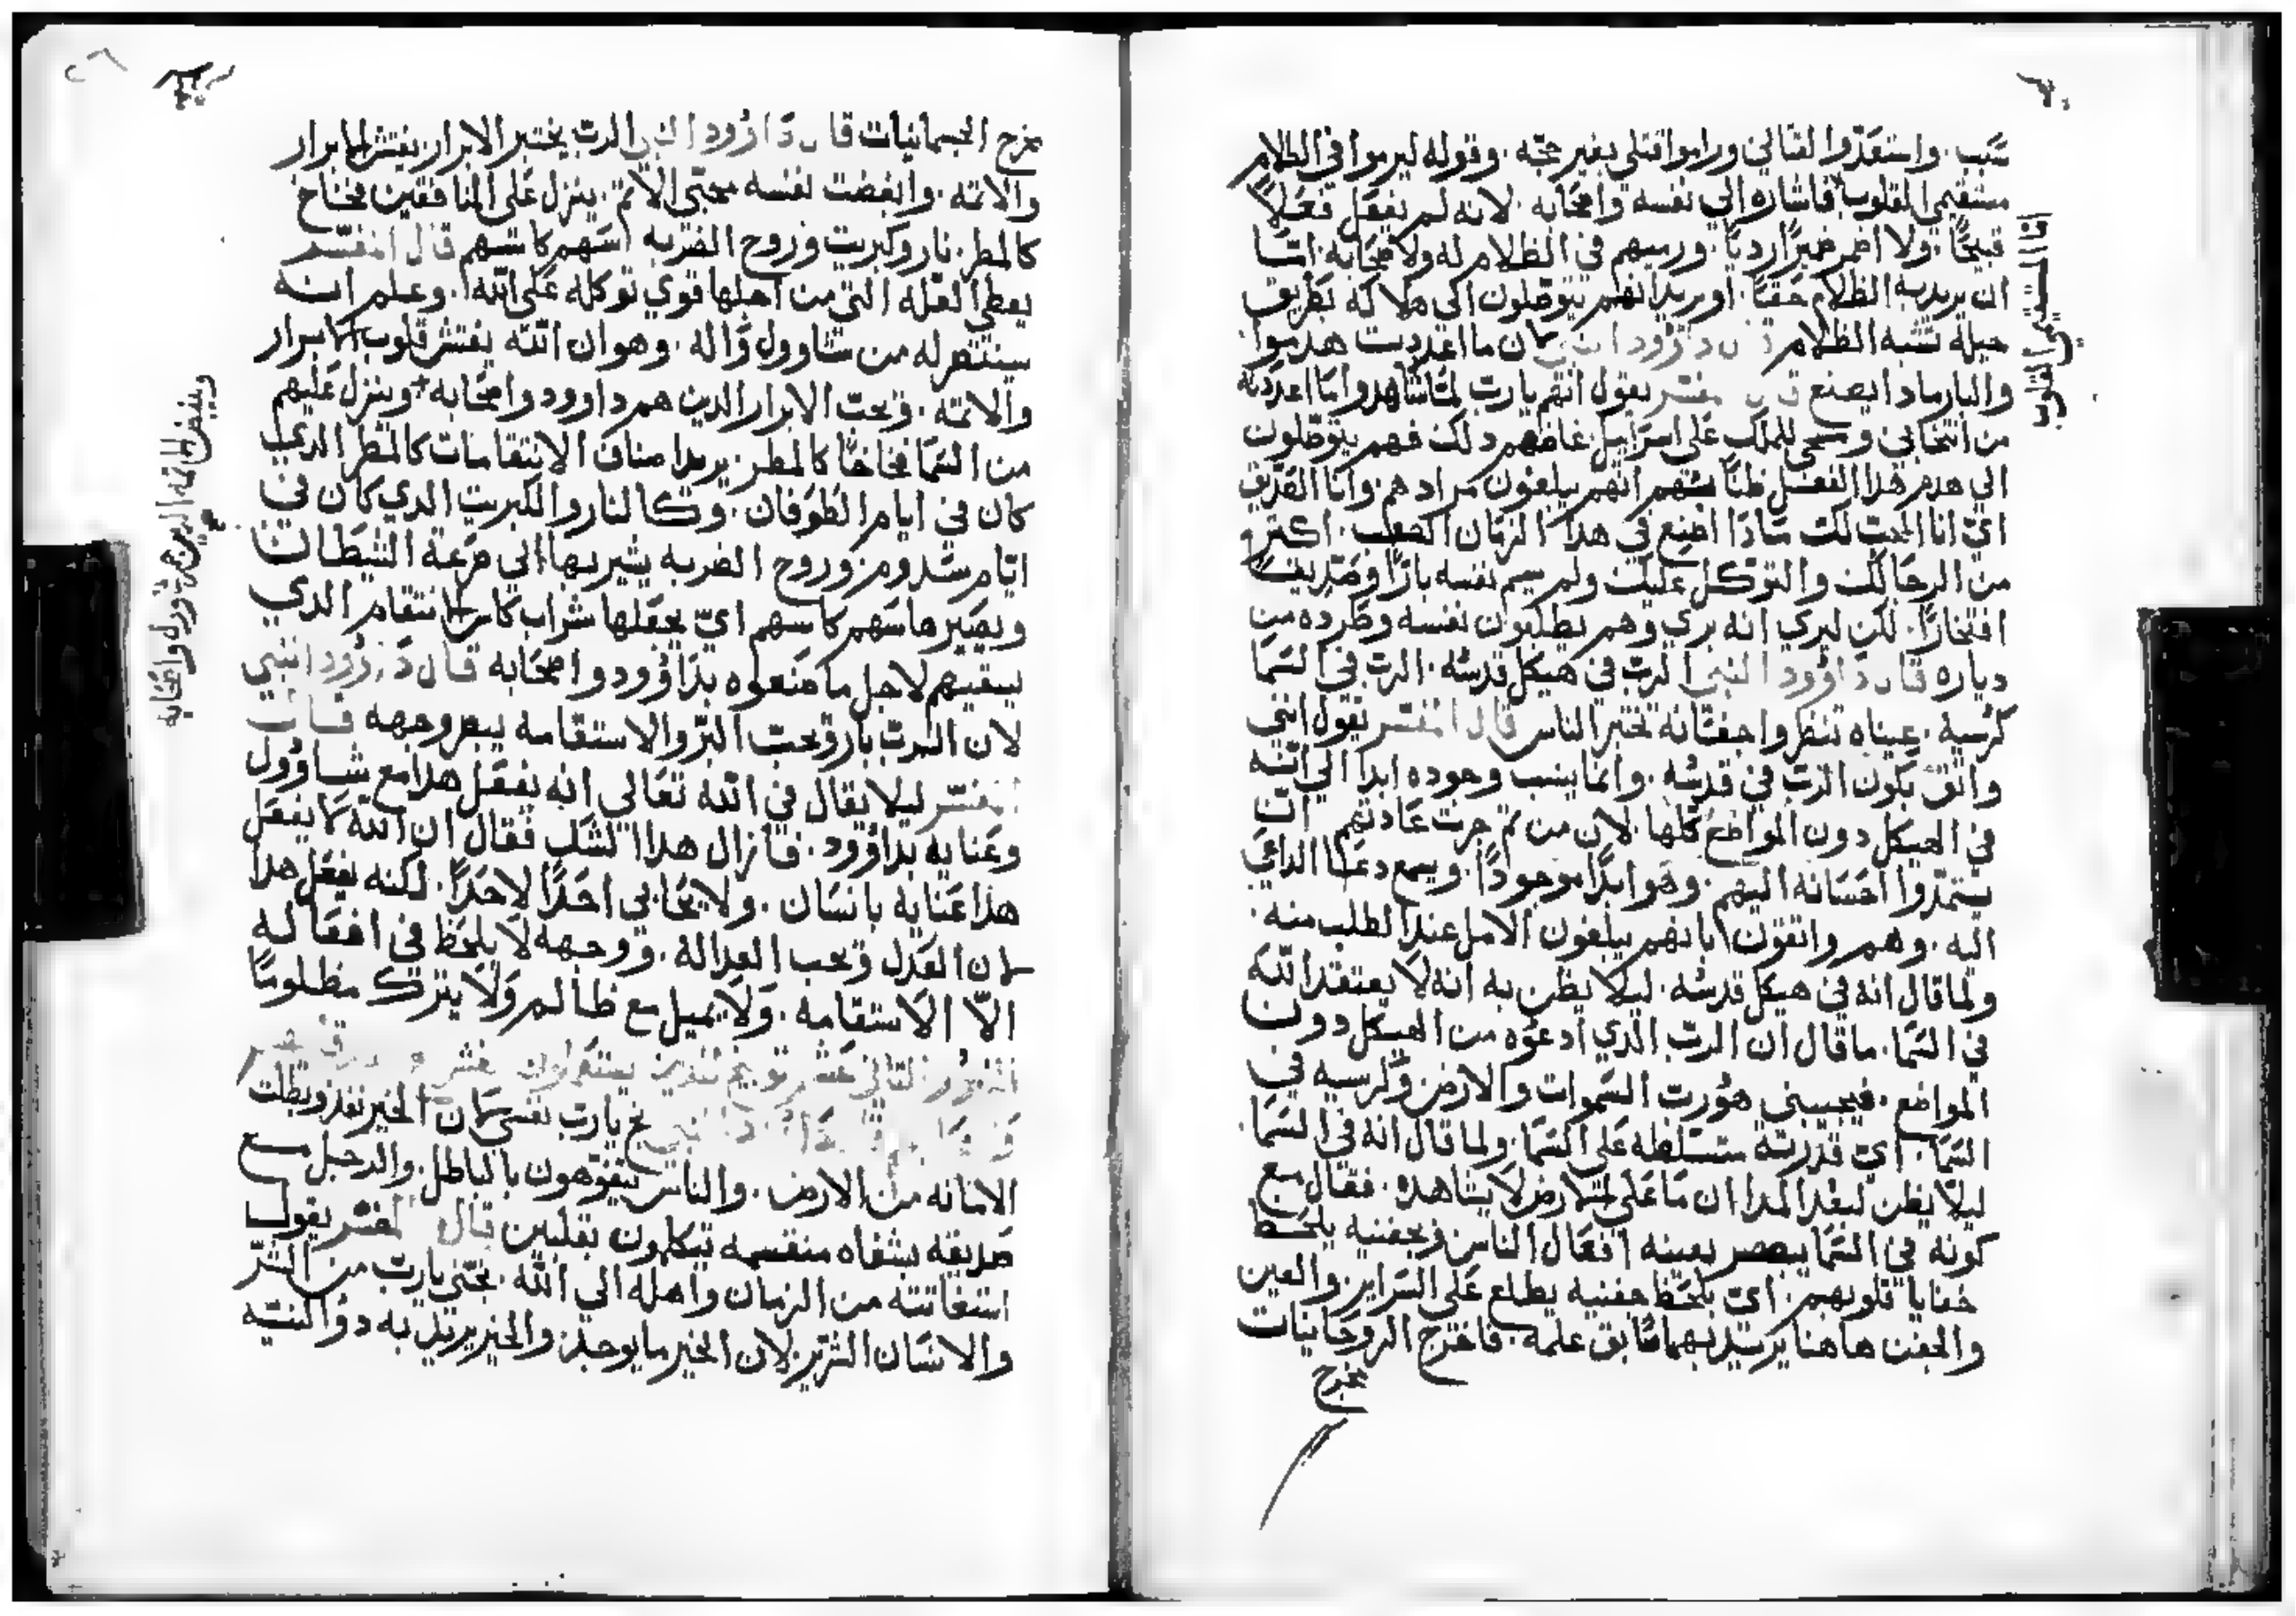 سبب. واستعدّوا لقتالي وراموا قتلي بغير حجّه. وقوله ليرموا في الظلام
مستقيمي القلوب فاشاره الي نفسه واصحابه. لانه لم يفعل فعلاً
قبيحًا. ولا اضمر ضميرًا رديًا. ورميهم في الظلام له ولاصحابه. امّا
ان يريد به الظلام حقًا. او يريد انهم يتوصّلون الي هلاكه بطريق
حيله تشبه الظلام قال داوود النبي لان ما اعددت هدموا
والبار ماذا يصنع قال المفسّر يقول انهم يارب لمّا شاهدوا ما اعددته
من انتخابي ومسحي للملك على اسراييل غاظهم دلك فهم يتوصّلون
الي هدم هدا الفعل ظنًا منهم انهم يبلغون مرادهم. وانا الصّديق
ايّ انا المحب لك ماذا اصنع في هدا الزمان الصعب. اكتر
من الرجا لك والتوكل عليك ولم يسم نفسه بارًا وصدّيقًا
افتخارًا. لكن ليري انه بري وهم يطلبون نفسه وطرده من
دياره قال داوود النبي الربّ في هيكل قدسه. الربّ في السّما
كرسيه. عيناه تنظر واجفانه تختبر الناس قال المفسّر يقول انني
واتق بكون الربّ في قدسه. وانما ينسب وجوده ابدا الي انه
في الهيكل دون المواضع كلها. لان من تم جرت عادتهم ان
يستمدّوا احسانه اليهم. وهو ابدًا موجودًا. ويسمع دعا الداعي
اليه. وهم واتقون بانهم يبلغون الامل عند الطلب منه.
ولما قال انه في هيكل قدسه. ليلا يظن به انه لا يعتقد الله
في السّما. ما قال ان الربّ الذي ادعوه من الهيكل دون
المواضع. فيجيبني هو ربّ السّموات والارض وكرسيه في
السّما. ايّ قدرته متسلطه على السّما. ولما قال انه في السّما.
ليلا يظن لبعد المدا ان ما على الارض لا يشاهده. فقال مع
كونه في السّما يبصر بعينه افعال الناس وبجفنيه يلحظ
خفايا قلوبهم. ايّ بلحظ جفنيه يطلع على السراير والعين
والجفن هاهنا يريد بهما سابق علمه. فاخرج الروحانيات
مخرج
اما المستقيمي القلوب
٢٦
مخرج الجسمانيات قال داوود النبي الربّ يختبر الابرار يفتش الابرار
والاتمه. وابغضت نفسه محبّي الاتم. ينزل على المنافقين فخاخ
كالمطر. نار وكبريت وروح الضربه اسهم كاسهم قال المفسّر
يعطي العله التي من اجلها قوي توكله على الله. وعلم انه
سينتصر له من شاوول واله. وهو ان الله يفتش قلوب الابرار
والاتمه. ويحب الابرار الدين هم داوود واصحابه. وينزل عليهم
من السّما فخاخًا كالمطر. يريد اصناف الانتقامات كالمطر الدي
كان في ايام الطوفان. وكالنار والكبريت الدي كان في
ايّام سدوم. وروح الضربه يشير بها الي صرعة الشيطان
ويصير هاسهم كاسهم ايّ يجعلها شراب كاس الانتقام الدي
يسقيهم لاجل ما صنعوه بداوود واصحابه قال داوود النبي
لان الربّ بار ويحب البرّ والاستقامه يبصر وجهه قال
المفسّر ليلا يقال في الله تعالي انه يفعل هدا مع شاوول
وعنايه بداوود. فازال هدا الشك فقال ان الله لا يفعل
هدا عنايه بانسان. ولا يحابي احدًا لاحدًا. لكنه يفعل هدا
لان العدل ويحب العداله. ووجهه لا يلحظ في افعاله
الاّ الاستقامه. ولا يميل مع ظالم ولا يترك مظلومًا
المزمور التاني عشر
يارب نفسي لان الخير نفد وبطلت
الامانه من الارض. والناس يتفوّهون بالباطل. والرجل مع
صديقه بشفاه منقسمه يتكلمون بقلبين قال المفسّر يقول
استغاتته من الزمان واهله الي الله. نجّني يارب من الشرّ
والانسان الشرّير. لان الخير ما يوجد. والخير يريد به دو النيّه
ويبغض الاتمه الدين هم شاوول واصحابه